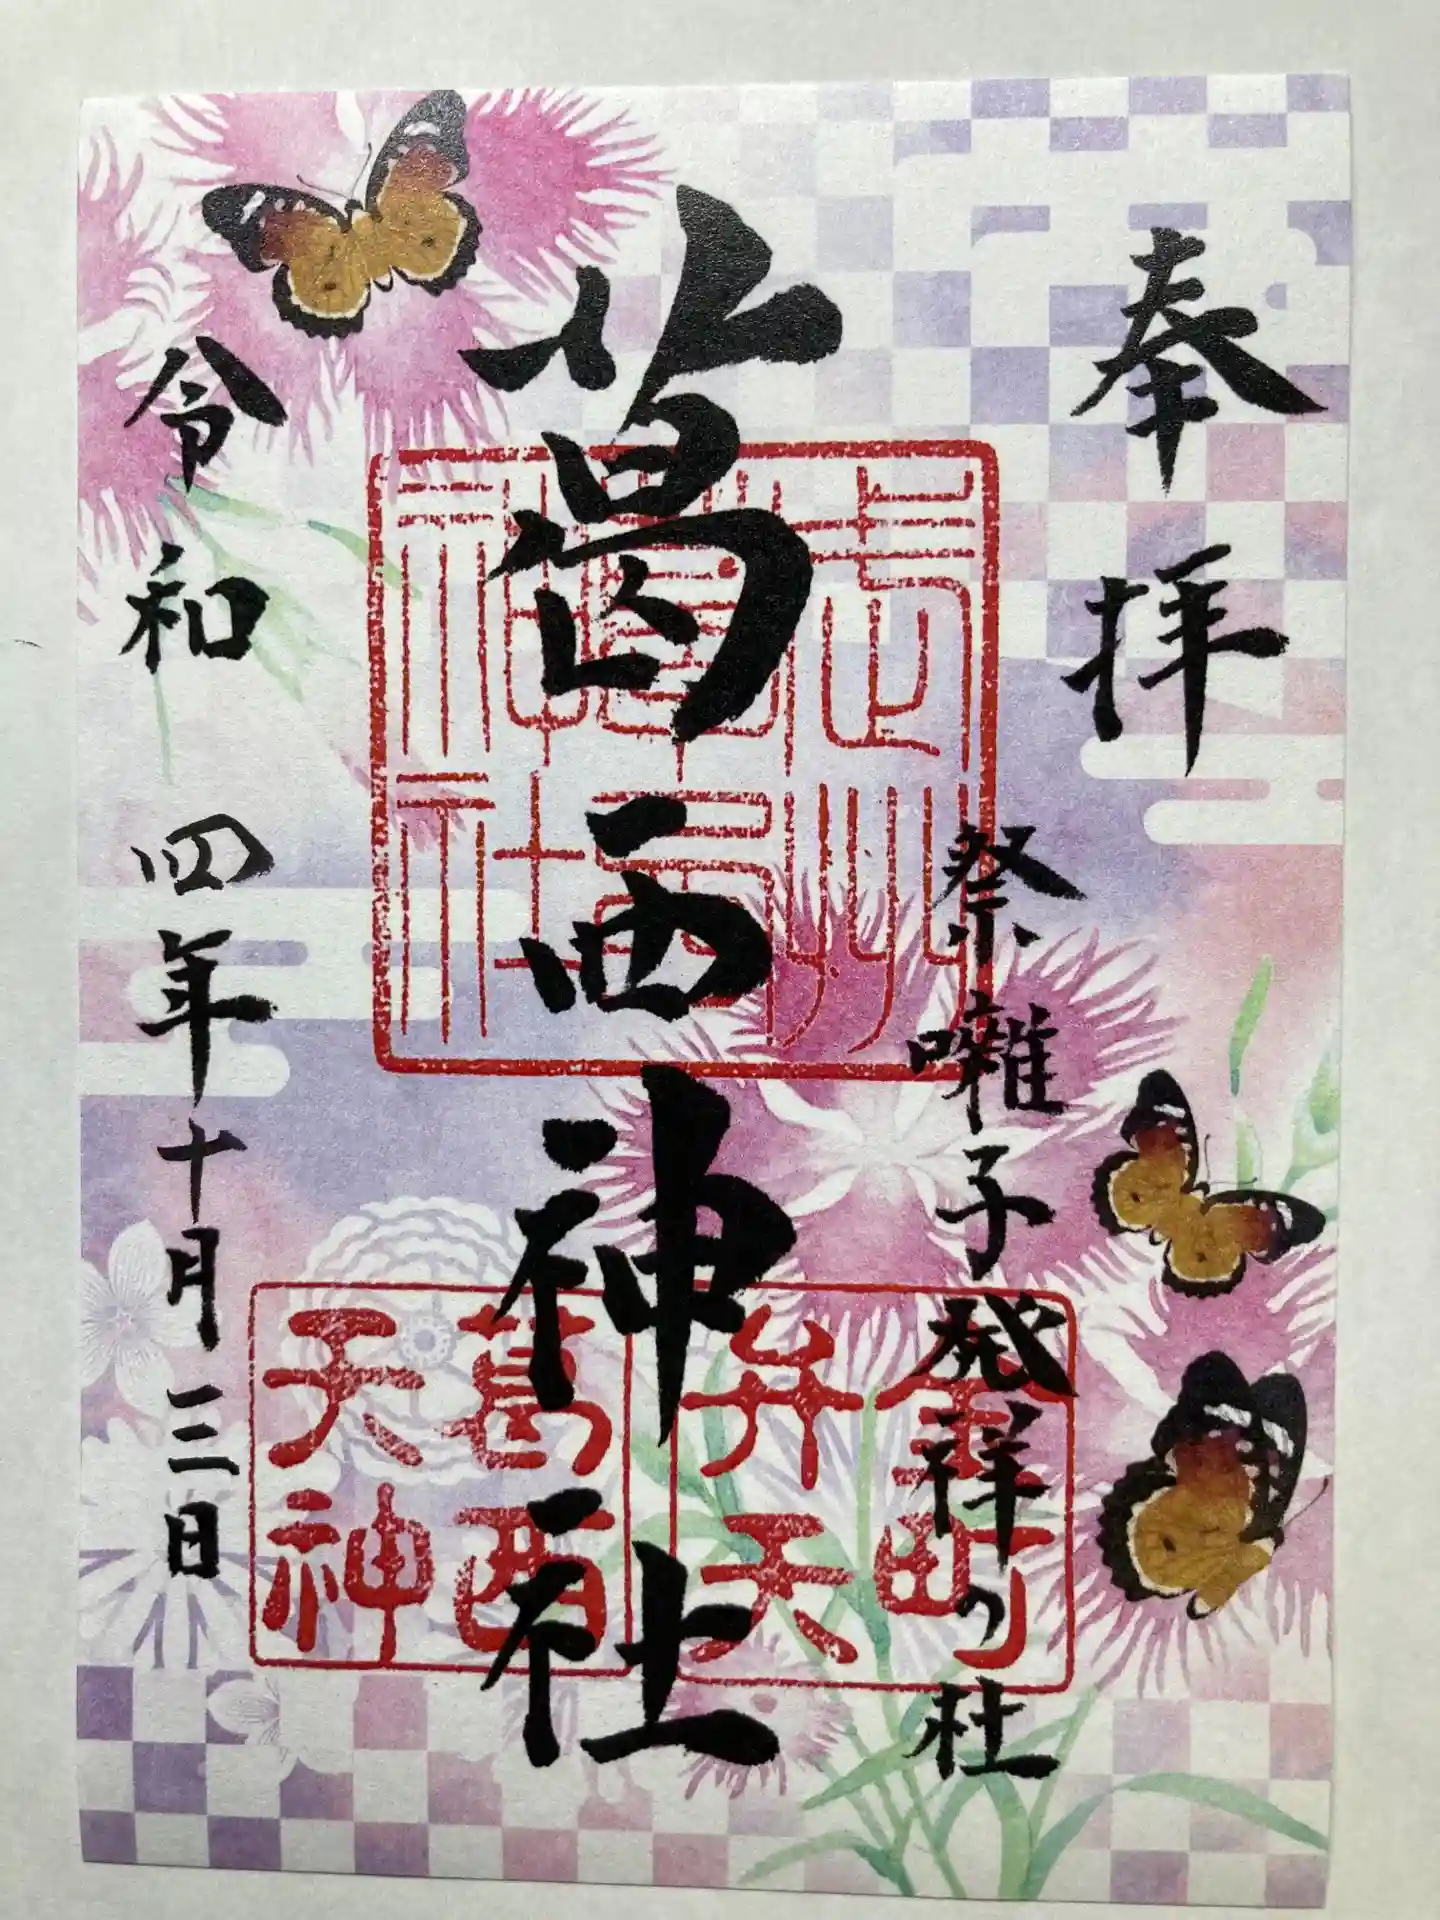 奉拝
祭囃子発祥の社
葛西神社
令和四年十月三日
葛西
天神
金町
弁天